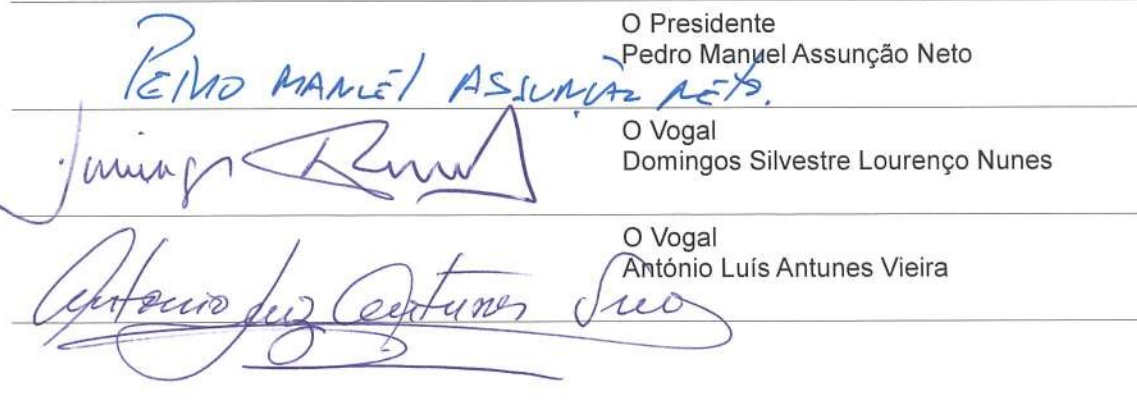 O Presidente
Pedro Manuel Assunção Neto
PEDRO MANUEL ASSUNÇÃO NETO.
O Vogal
Domingos Silvestre Lourenço Nunes
Domingos
O Vogal
António Luís Antunes Vieira
Antonio Luis Antunes